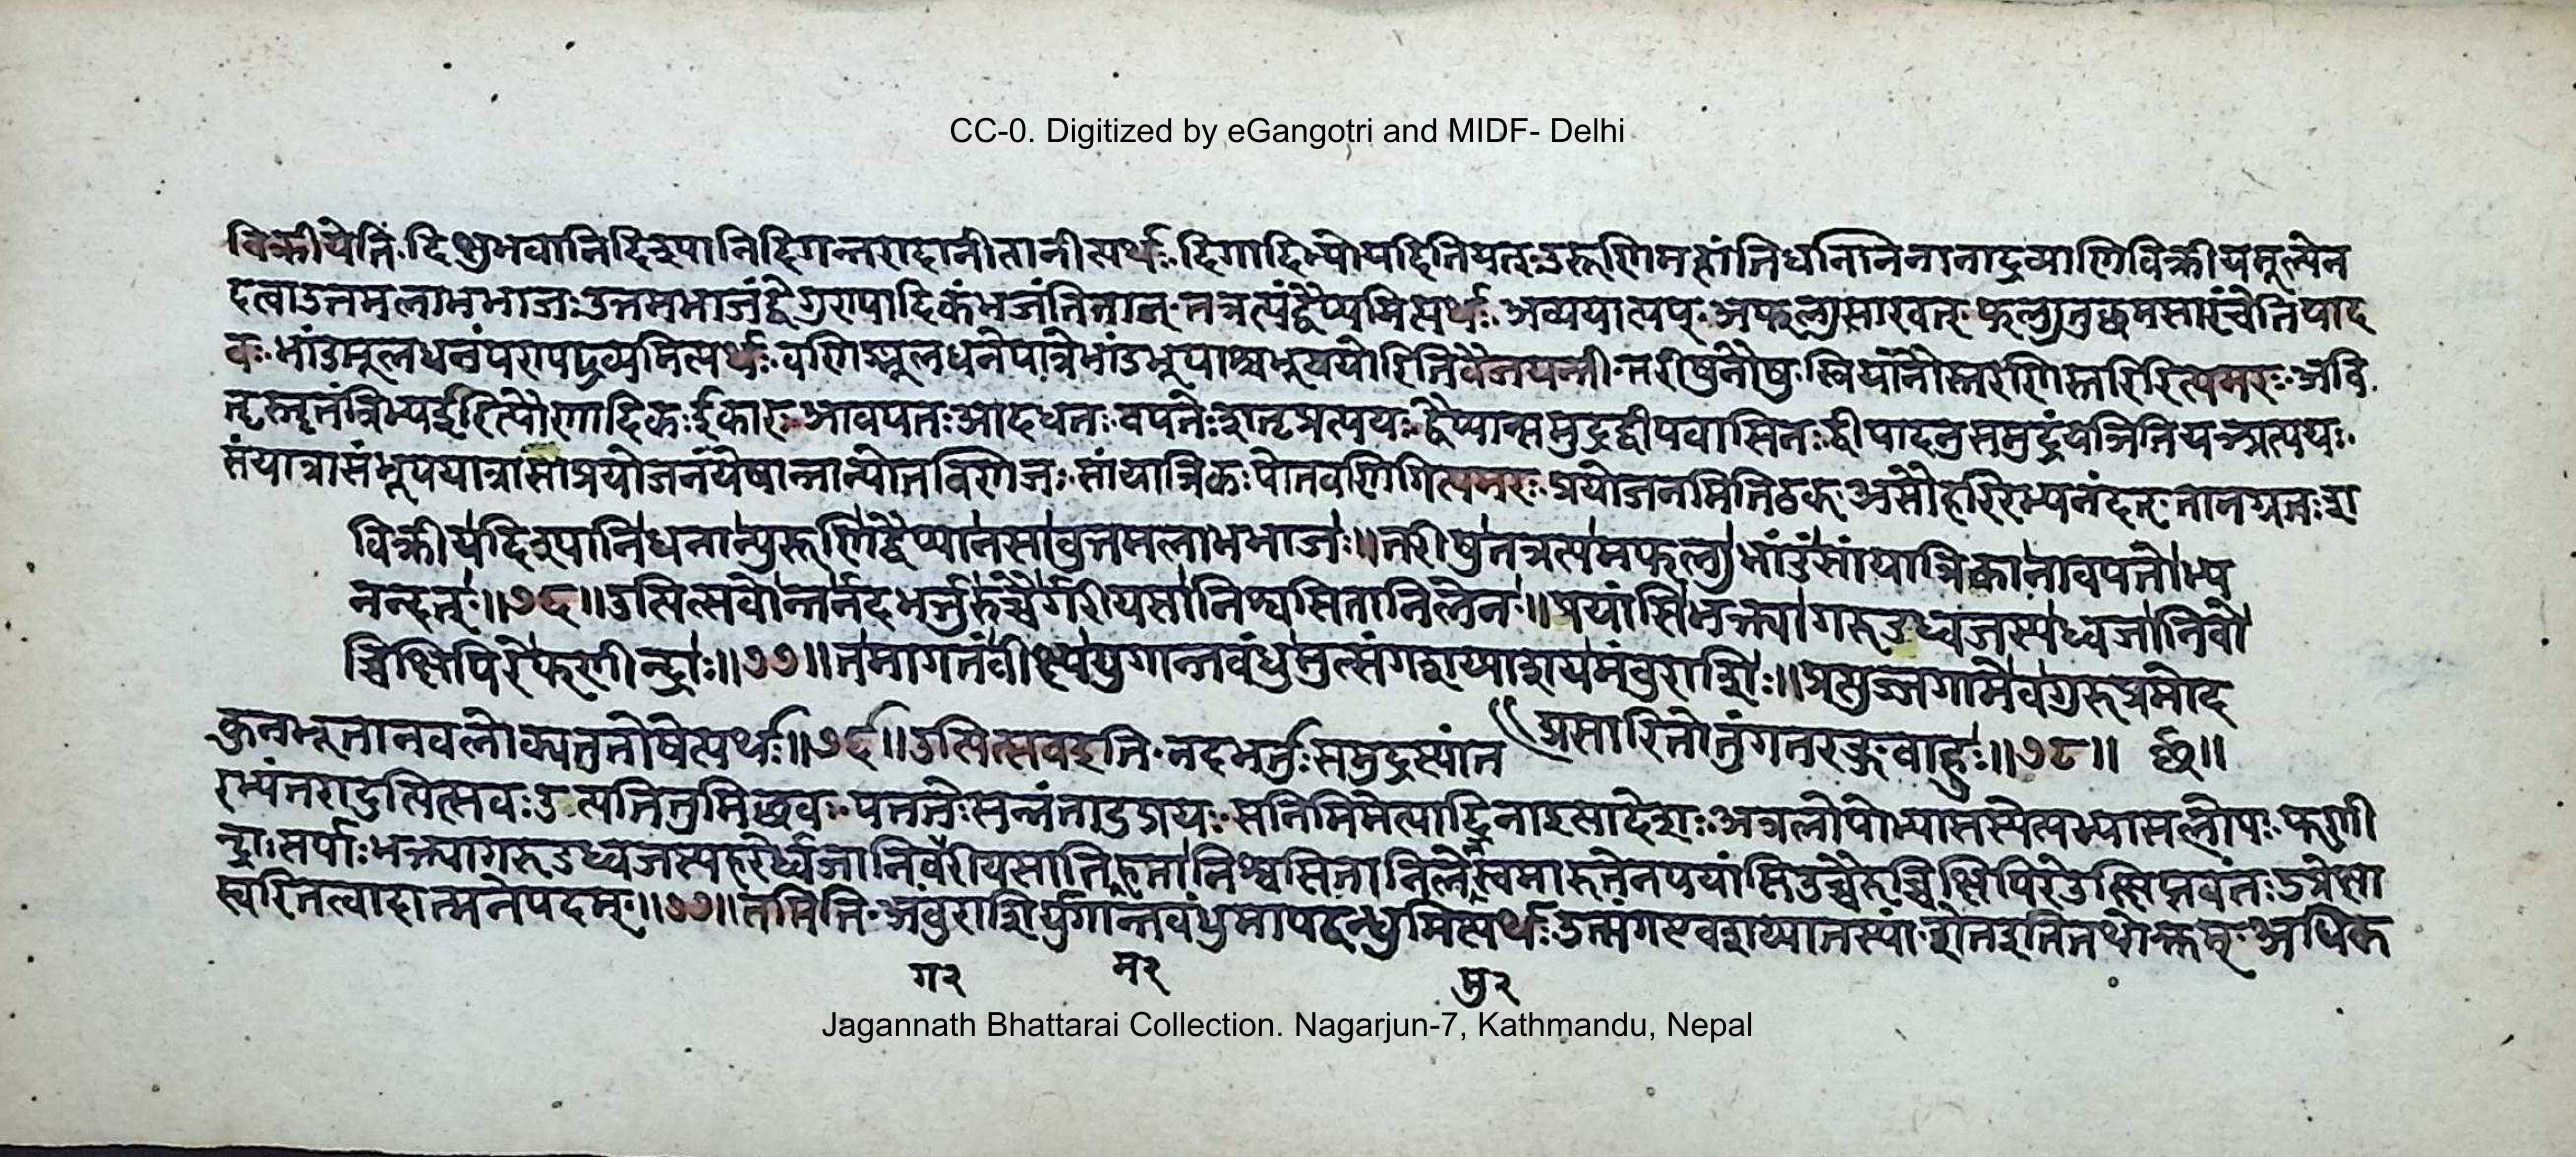 CC-0. Digitized by eGangotri and MIDF- Delhi
विक्रीयेति दिक्षुभवानिदिश्यानिदिगन्तरादानीतानीत्यर्थः दिगादिभ्योयदितियत् उरूणिमहांतिधनानिनानाद्रव्याणिविक्रीयमूल्येन
दत्वाउत्तमलाभभाजः उत्तमभाजंद्वैगुण्यादिकंभजंतितान् तत्रत्यंद्वैप्यमित्यर्थः अव्ययात्यप् अफल्गुसारवत् फल्गुतुछमसारंचेतियाद
वः भांडंमूलधनंपण्यद्रव्यमित्यर्थः वणिङ्मूलधनेपात्रेभांडंभूषाश्वभूषयोरितिवैजयन्ती तरीषुनौषु स्त्रियांनौस्तरणिस्तरिरित्यमरः अवि
तृस्तृतंत्रिभ्यईरित्यौणादिकः ईकारः आवपतः आदधतः वपतेःशतृप्रत्ययः द्वैप्यान्समुद्रद्वीपवासिनः द्वीपादनुसमुद्रंयञितियञ्प्रत्ययः
संयात्रासंभूययात्रासाप्रयोजनंयेषान्तान्पोतवणिजः सांयात्रिकःपोतवणिगित्यमरः प्रयोजनमितिठक् असौहरिरभ्यनंदत् तानग्रतःशा
विक्रीयदिश्यानिधनान्युरूणिद्वैप्यानसावुत्तमलाभभाजः॥तरीषुतत्रत्यमफल्गुभांडंसांयात्रिकानावपतोभ्य
नन्दत्॥७६॥उत्पित्सवोन्तर्नदभर्त्तुरुच्चैर्गरीयसानिश्वसितानिलेन॥पयांसिभक्त्यागरुडध्वजस्यध्वजानिवो
च्चिक्षिपिरेफणीन्द्राः॥७७॥तमागतंवीक्ष्ययुगान्तबंधुमुत्संगशय्याशयमंबुराशिः॥प्रत्युज्जगामेवगुरुप्रमोद
प्रसारितोत्तुंगतरङ्गबाहुः॥७८॥ छ॥
कुनभूतानवलोक्यतुतोषेत्यर्थः॥७६॥उत्पित्सवइति नदभर्तुःसमुद्रस्यांत
रभ्यंतरादुत्पित्सवःउत्पतितुमिछवः पततेःसन्नंतादुप्रत्ययः सनिमिमेत्यादिनाइसादेशः अत्रलोपोभ्यासस्येत्यभ्यासलोपः फणी
न्द्राःसर्पाःभक्त्यागरुडध्वजस्यहरेर्ध्वजानिवगरीयसानिश्वसितानिलेनस्वमारुतेनपयांसिउच्चैरुच्चिक्षिपिरेउत्क्षिप्तवंतः
स्वरितत्वादात्मनेपदम्॥७७॥तमिति अंबुराशिर्युगान्तबंधुमापद्बन्धुमित्यर्थः उत्संगएवशय्यातस्यां शेतइतितथोक्तम् अधिक
ग२ म२ मु२
Jagannath Bhattarai Collection. Nagarjun-7, Kathmandu, Nepal